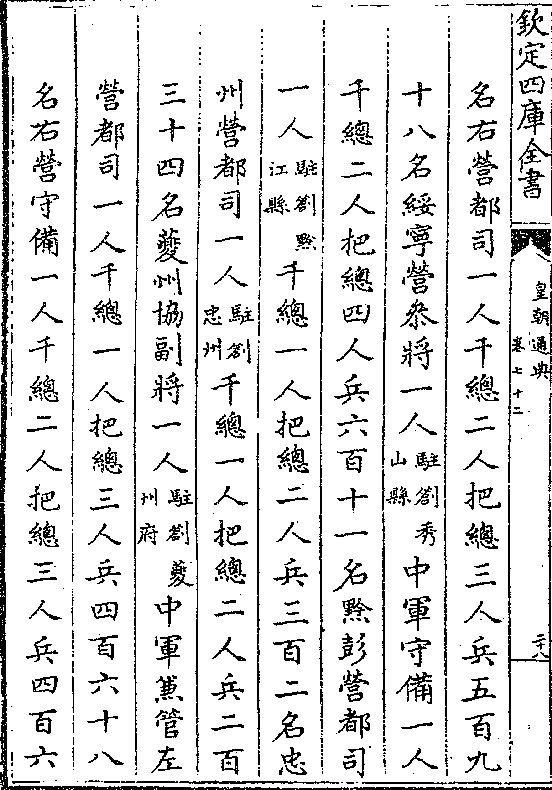 欽定四庫全書
皇朝通典
卷七十二
二十八
名右營都司一人千總二人把總三人兵五百九
十八名綏寧營叅將一人駐劄秀山縣中軍守備一人
千總二人把總四人兵六百十一名黔彭營都司
一人駐劄黔江縣千總一人把總二人兵三百二名忠
州營都司一人駐劄忠州千總一人把總二人兵二百
三十四名夔州協副將一人駐劄夔州府中軍兼管左
營都司一人千總一人把總三人兵四百六十八
名右營守備一人千總二人把總三人兵四百六